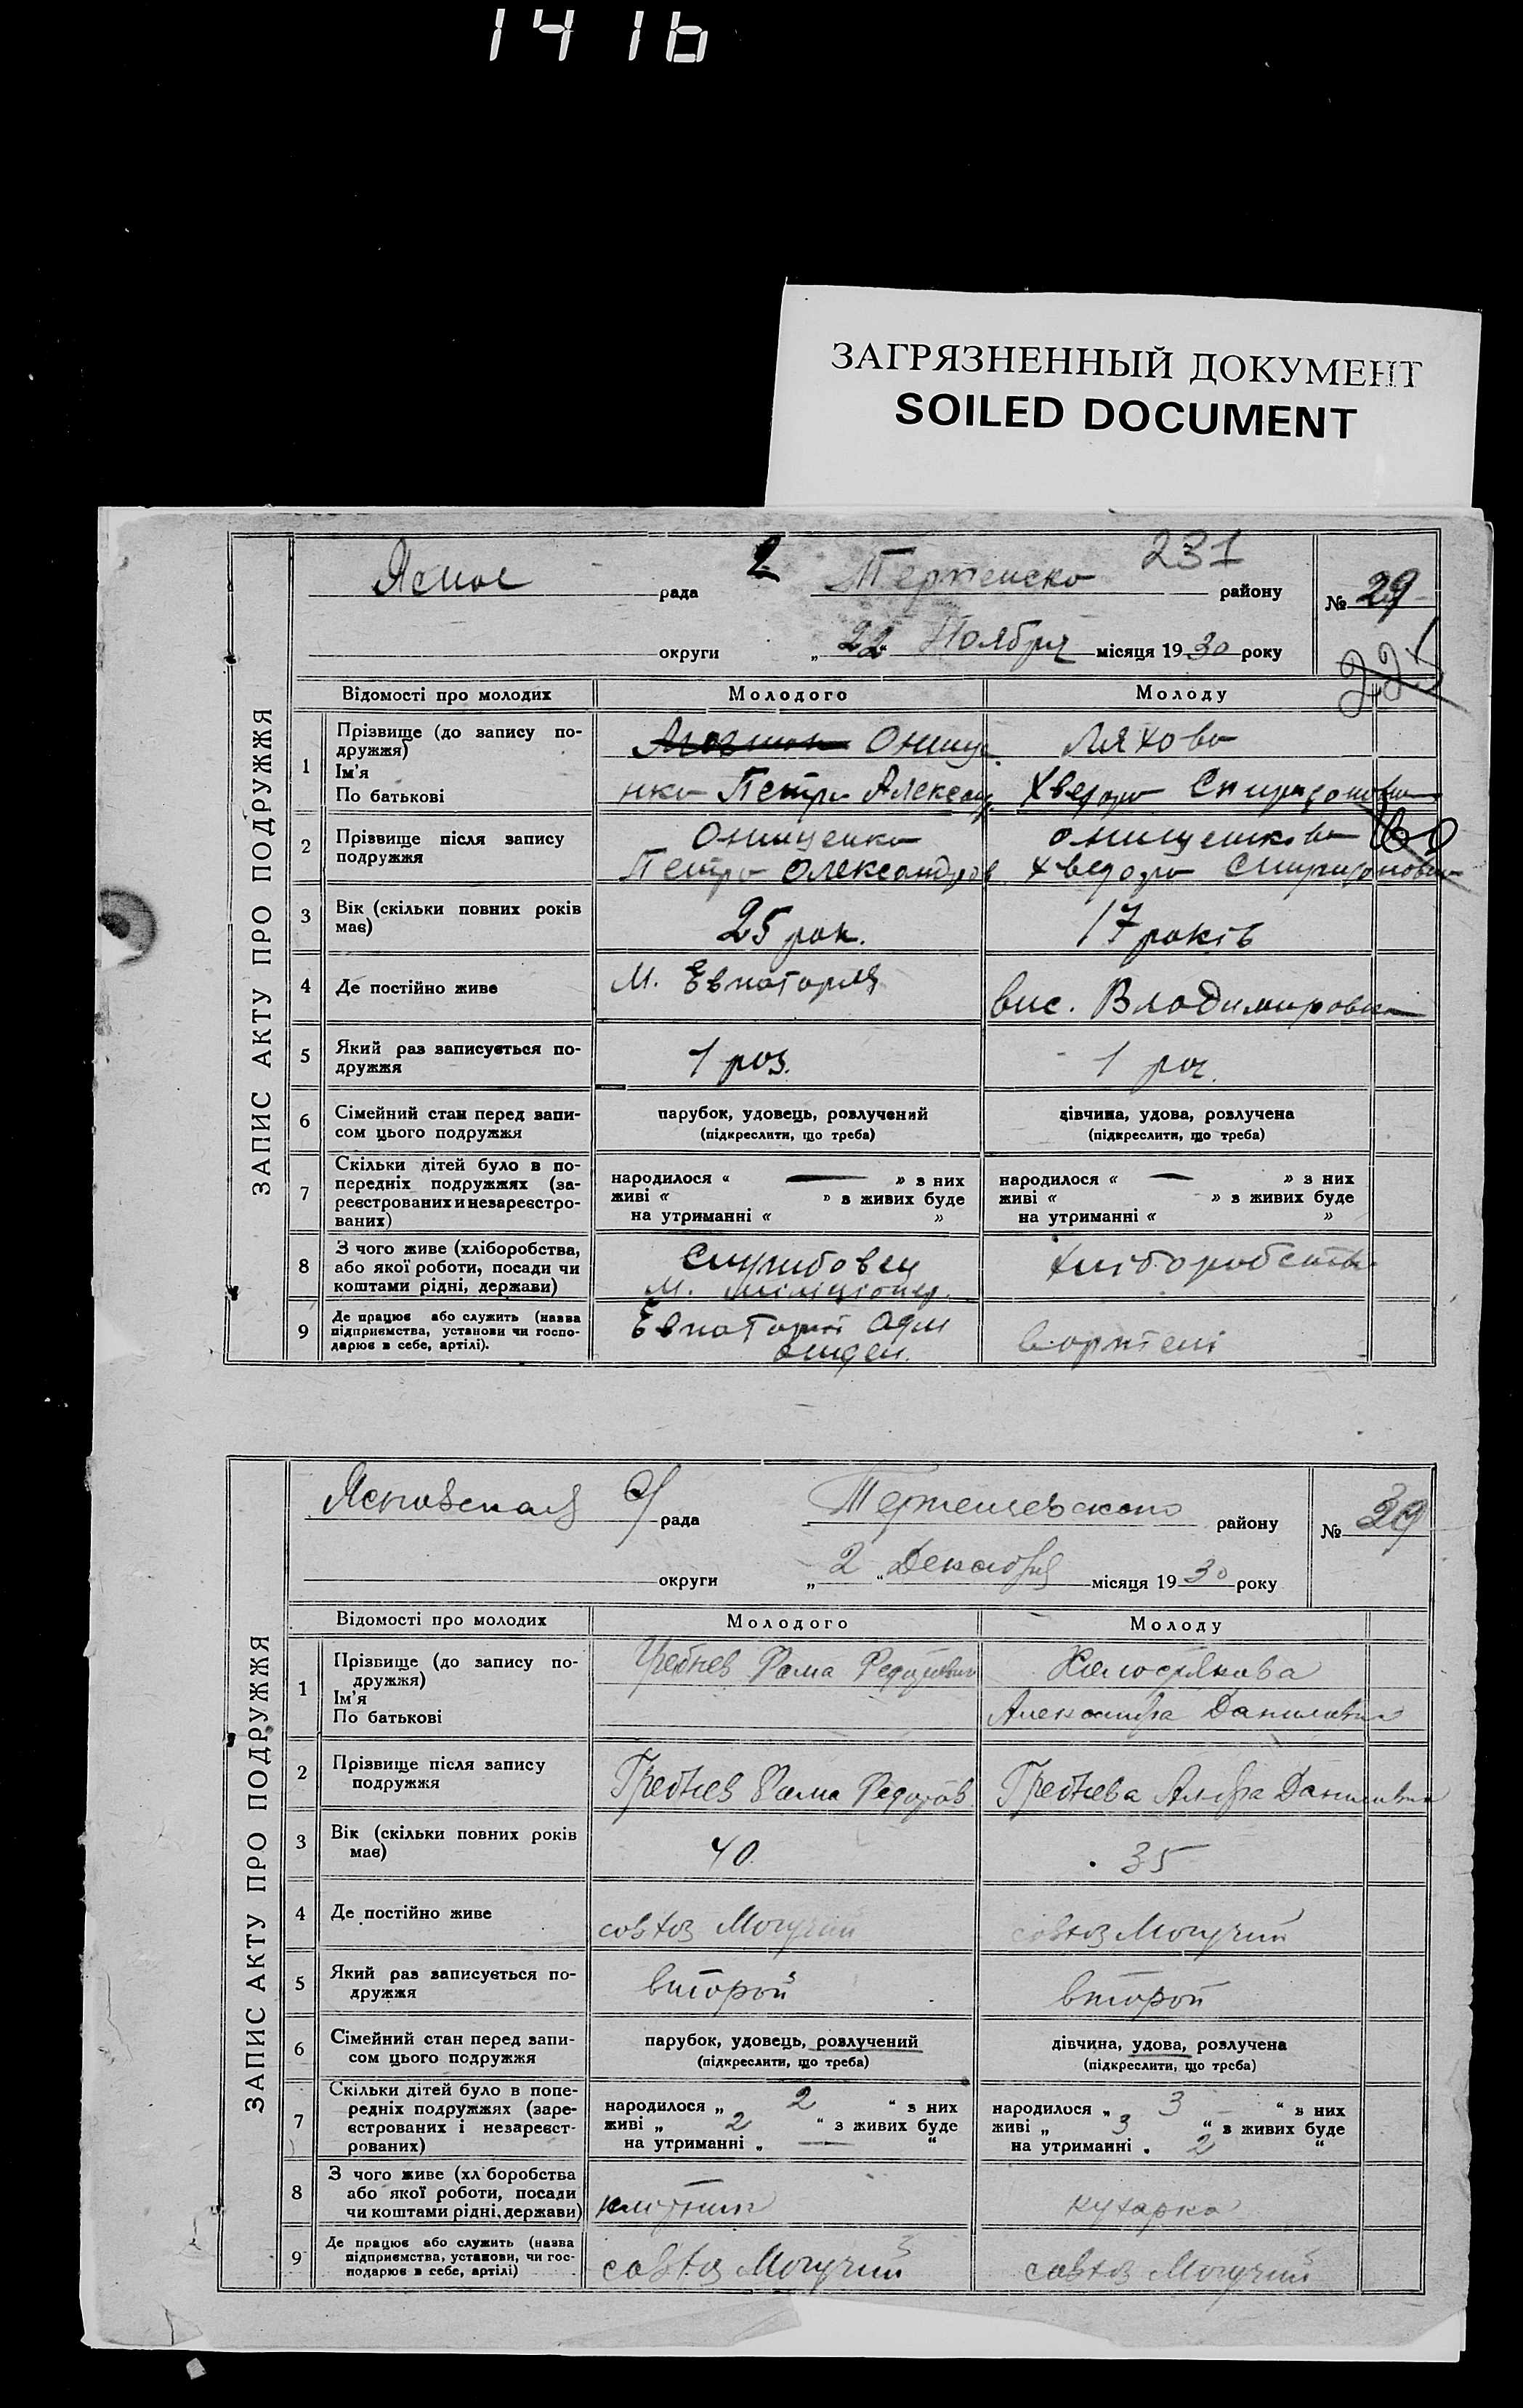 1416
ЗАГРЯЗНЕННЫЙ ДОКУМЕНТ
SOILED DOCUMENT
ЗАПИС АКТУ ПРО ПОДРУЖЖЯ
231
рада району № 29
округи „ 22 Ноября місяця 1930 року
225
Відомості про молодих Молодого Молоду
1 Прізвище (до запису подружжя) Ім'я По батькові
Ляхова
Петро Хведора
2 Прізвище після запису подружжя
Онищенко
Петро Олександров Хведора
3 Вік (скільки повних років має) 25 рок. 17 років
4 Де постійно живе М. Евпатория вис. Владимировка
5 Який раз записується подружжя 1 раз. 1 раз.
6 Сімейний стан перед записом цього подружжя парубок, удовець, розлучений дівчина, удова, розлучена
(підкреслити, що треба) (підкреслити, що треба)
7 Скільки дітей було в попередніх подружжях (зареєстрованих и незареєстрованих)
народилося « — » з них народилося « — » з них
живі « » з живих буде живі « » з живих буде
на утриманні « » на утриманні « »
8 З чого живе (хліборобства, або якої роботи, посади чи коштами рідні, держави)
Службовец хліборобства
М. міліціонер.
9 Де працює або служить (назва підприємства, установи чи господарює в себе, артілі).
в артелі
ЗАПИС АКТУ ПРО ПОДРУЖЖЯ
рада району № 39
округи „ 2 “ Декабря місяця 1930 року
Відомості про молодих Молодого Молоду
1 Прізвище (до запису подружжя) Ім'я По батькові
Александра Даниловна
2 Прізвище після запису подружжя
Гребнев Гребнева Даниловна
3 Вік (скільки повних років має) 40 35
4 Де постійно живе совхоз Могучий совхоз Могучий
5 Який раз записується подружжя второй второй
6 Сімейний стан перед записом цього подружжя парубок, удовець, розлучений дівчина, удова, розлучена
(підкреслити, що треба) (підкреслити, що треба)
7 Скільки дітей було в попередніх подружжях (зареєстрованих і незареєстрованих)
народилося „ 2 “ з них народилося „ 3 “ з них
живі „ 2 “ з живих буде живі „ 3 “ з живих буде
на утриманні „ — “ на утриманні „ 2 “
8 З чого живе (хліборобства або якої роботи, посади чи коштами рідні, держави) кухарка
9 Де працює або служить (назва підприємства, установи, чи господарює в себе, артілі) совхоз Могучий совхоз Могучий